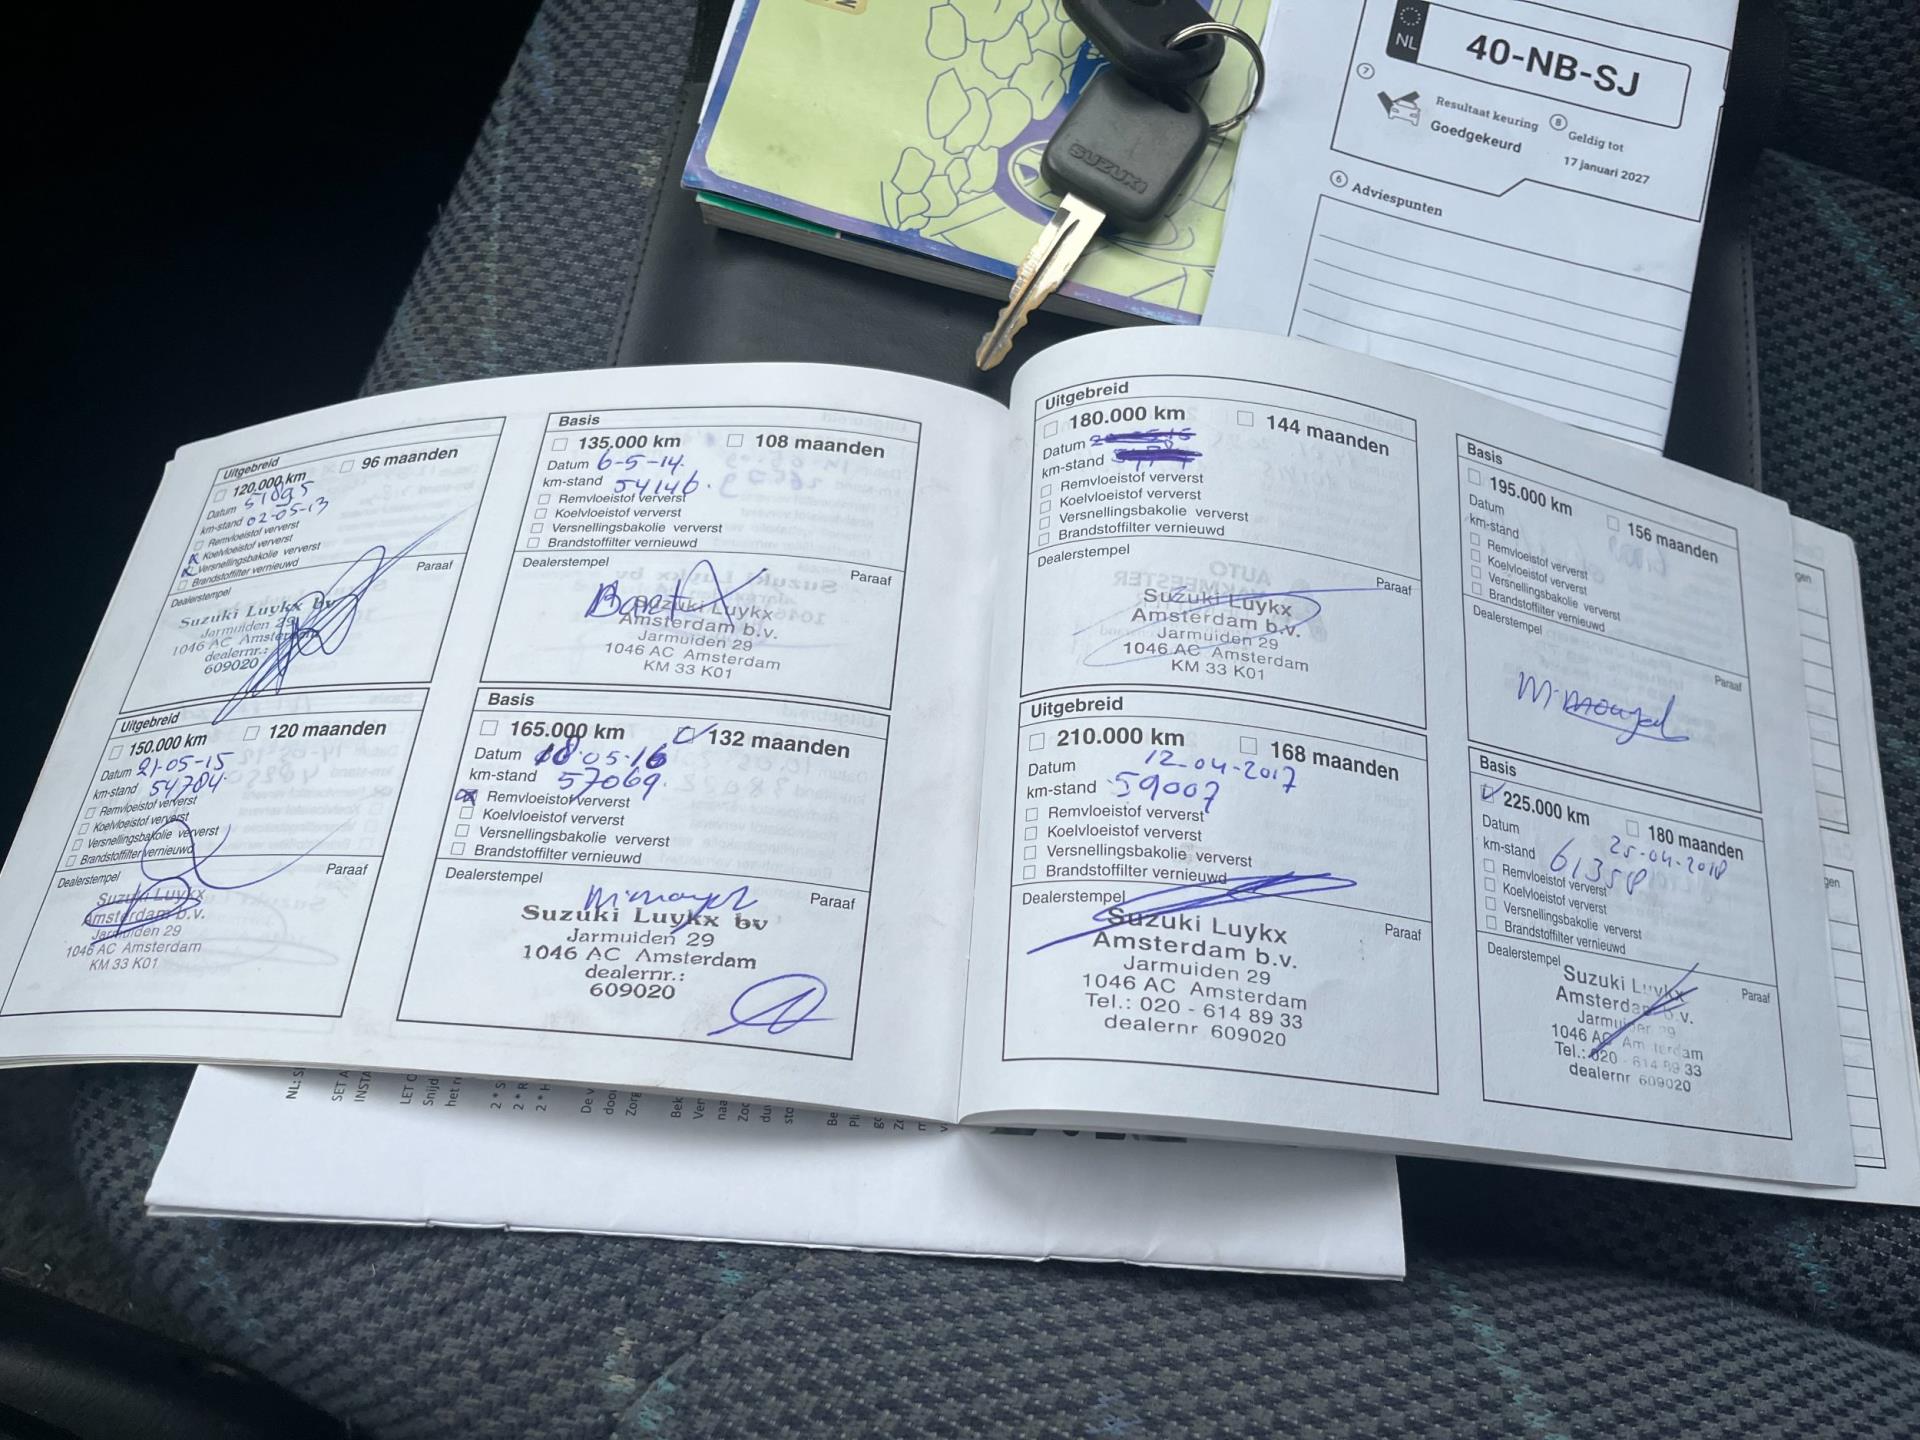 NL
40-NB-SJ
7
Resultaat keuring
Goedgekeurd
8
Geldig tot
17 januari 2027
6 Adviespunten
SUZUKI
Uitgebreid
120.000 km 96 maanden
Datum 51895
km-stand 02-05-13
Remvloeistof ververst
Koelvloeistof ververst
Versnellingsbakolie ververst
Brandstoffilter vernieuwd
Dealerstempel Paraaf
Suzuki Luykx bv
Jarmuiden 29
1046 AC Amsterdam
dealernr.:
609020
Basis
135.000 km 108 maanden
Datum 6-5-14.
km-stand 54146.
Remvloeistof ververst
Koelvloeistof ververst
Versnellingsbakolie ververst
Brandstoffilter vernieuwd
Dealerstempel Paraaf
Suzuki Luykx
Amsterdam b.v.
Jarmuiden 29
1046 AC Amsterdam
KM 33 K01
Uitgebreid
150.000 km 120 maanden
Datum 21-05-15
km-stand 54784.
Remvloeistof ververst
Koelvloeistof ververst
Versnellingsbakolie ververst
Brandstoffilter vernieuwd
Dealerstempel Paraaf
Suzuki Luykx
Amsterdam b.v.
Jarmuiden 29
1046 AC Amsterdam
KM 33 K01
Basis
165.000 km 132 maanden
Datum 18-05-16
km-stand 57069.
Remvloeistof ververst
Koelvloeistof ververst
Versnellingsbakolie ververst
Brandstoffilter vernieuwd
Dealerstempel Paraaf
Suzuki Luykx bv
Jarmuiden 29
1046 AC Amsterdam
dealernr.:
609020
Uitgebreid
180.000 km 144 maanden
Datum
km-stand
Remvloeistof ververst
Koelvloeistof ververst
Versnellingsbakolie ververst
Brandstoffilter vernieuwd
Dealerstempel Paraaf
Suzuki Luykx
Amsterdam b.v.
Jarmuiden 29
1046 AC Amsterdam
KM 33 K01
Basis
195.000 km 156 maanden
Datum
km-stand
Remvloeistof ververst
Koelvloeistof ververst
Versnellingsbakolie ververst
Brandstoffilter vernieuwd
Dealerstempel Paraaf
Uitgebreid
210.000 km 168 maanden
Datum 12-04-2017
km-stand 59007
Remvloeistof ververst
Koelvloeistof ververst
Versnellingsbakolie ververst
Brandstoffilter vernieuwd
Dealerstempel Paraaf
Suzuki Luykx
Amsterdam b.v.
Jarmuiden 29
1046 AC Amsterdam
Tel.: 020 - 614 89 33
dealernr 609020
Basis
225.000 km 180 maanden
Datum 25-04-2018
km-stand 61358
Remvloeistof ververst
Koelvloeistof ververst
Versnellingsbakolie ververst
Brandstoffilter vernieuwd
Dealerstempel Paraaf
Suzuki Luykx
Amsterdam b.v.
Jarmuiden 29
1046 AC Amsterdam
Tel.: 020 - 614 89 33
dealernr 609020